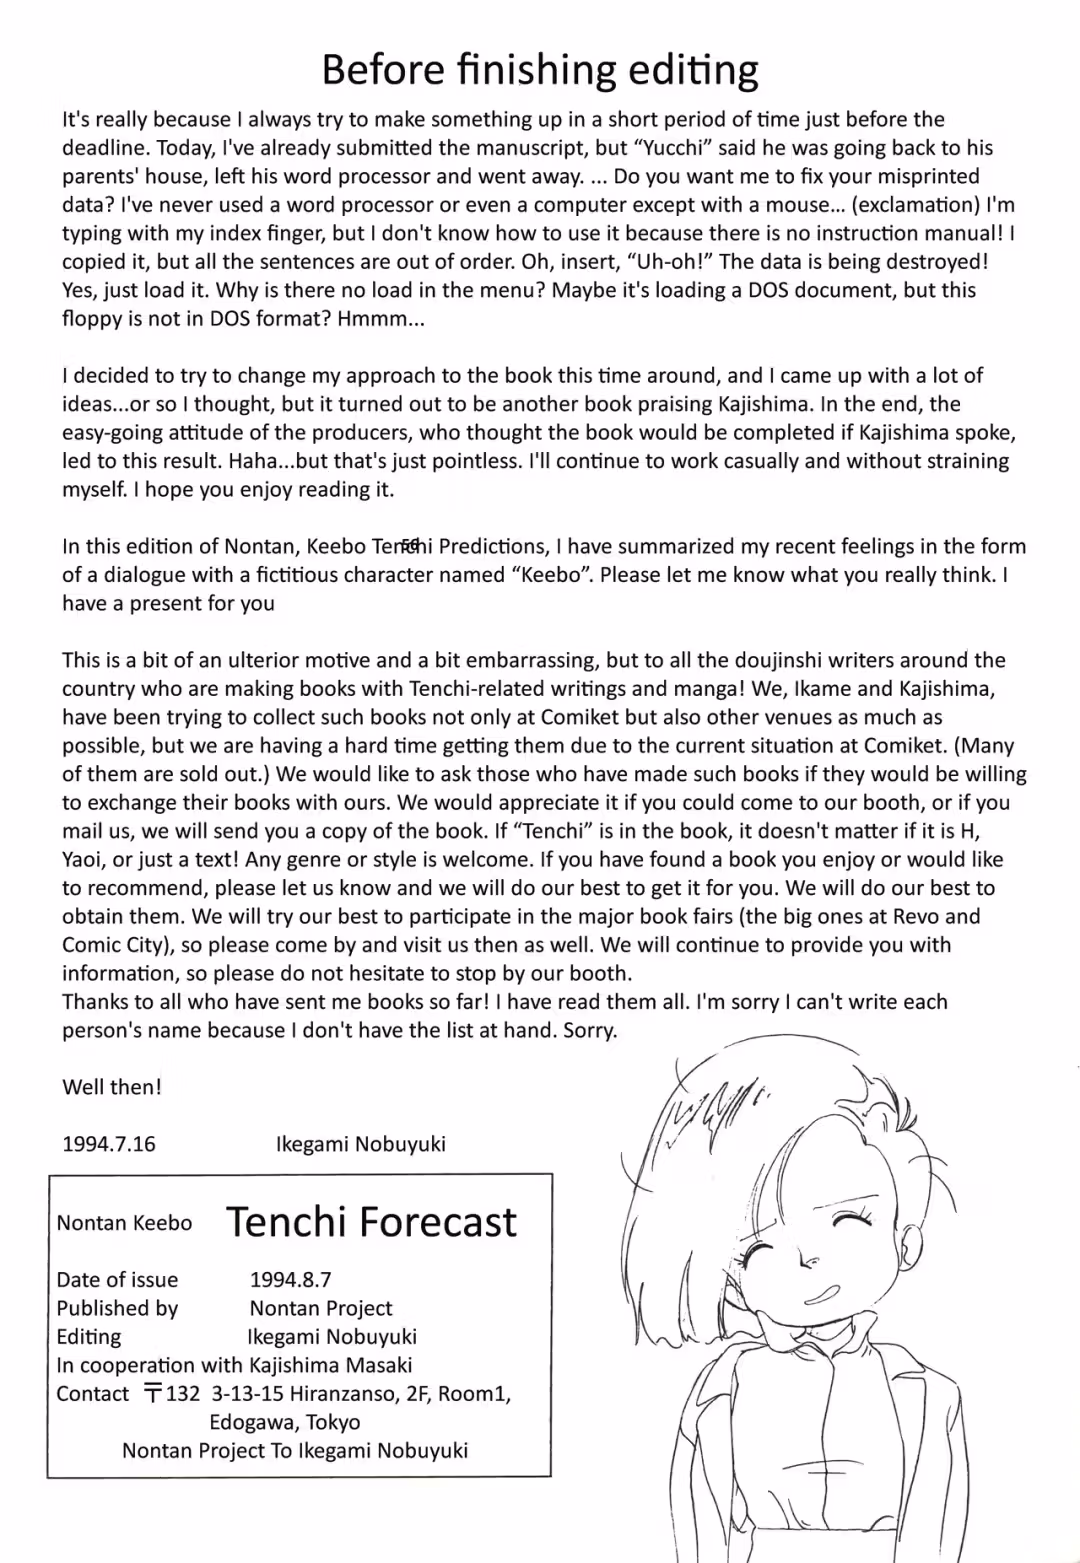 Before finishing editing
It's really because I always try to make something up in a short period of time just before the
deadline. Today, I've already submitted the manuscript, but “Yucchi” said he was going back to his
parents' house, left his word processor and went away. ... Do you want me to fix your misprinted
data? I've never used a word processor or even a computer except with a mouse... (exclamation) I'm
typing with my index finger, but I don't know how to use it because there is no instruction manual! I
copied it, but all the sentences are out of order. Oh, insert, “Uh-oh!” The data is being destroyed!
Yes, just load it. Why is there no load in the menu? Maybe it's loading a DOS document, but this
floppy is not in DOS format? Hmmm...
I decided to try to change my approach to the book this time around, and I came up with a lot of
ideas...or so I thought, but it turned out to be another book praising Kajishima. In the end, the
easy-going attitude of the producers, who thought the book would be completed if Kajishima spoke,
led to this result. Haha...but that's just pointless. I'll continue to work casually and without straining
myself. I hope you enjoy reading it.
In this edition of Nontan, Keebo Tenchi Predictions, I have summarized my recent feelings in the form
of a dialogue with a fictitious character named “Keebo”. Please let me know what you really think. I
have a present for you
This is a bit of an ulterior motive and a bit embarrassing, but to all the doujinshi writers around the
country who are making books with Tenchi-related writings and manga! We, Ikame and Kajishima,
have been trying to collect such books not only at Comiket but also other venues as much as
possible, but we are having a hard time getting them due to the current situation at Comiket. (Many
of them are sold out.) We would like to ask those who have made such books if they would be willing
to exchange their books with ours. We would appreciate it if you could come to our booth, or if you
mail us, we will send you a copy of the book. If “Tenchi” is in the book, it doesn't matter if it is H,
Yaoi, or just a text! Any genre or style is welcome. If you have found a book you enjoy or would like
to recommend, please let us know and we will do our best to get it for you. We will do our best to
obtain them. We will try our best to participate in the major book fairs (the big ones at Revo and
Comic City), so please come by and visit us then as well. We will continue to provide you with
information, so please do not hesitate to stop by our booth.
Thanks to all who have sent me books so far! I have read them all. I'm sorry I can't write each
person's name because I don't have the list at hand. Sorry.
Well then!
1994.7.16 Ikegami Nobuyuki
Nontan Keebo Tenchi Forecast
Date of issue 1994.8.7
Published by Nontan Project
Editing Ikegami Nobuyuki
In cooperation with Kajishima Masaki
Contact 〒132 3-13-15 Hiranzanso, 2F, Room1,
Edogawa, Tokyo
Nontan Project To Ikegami Nobuyuki